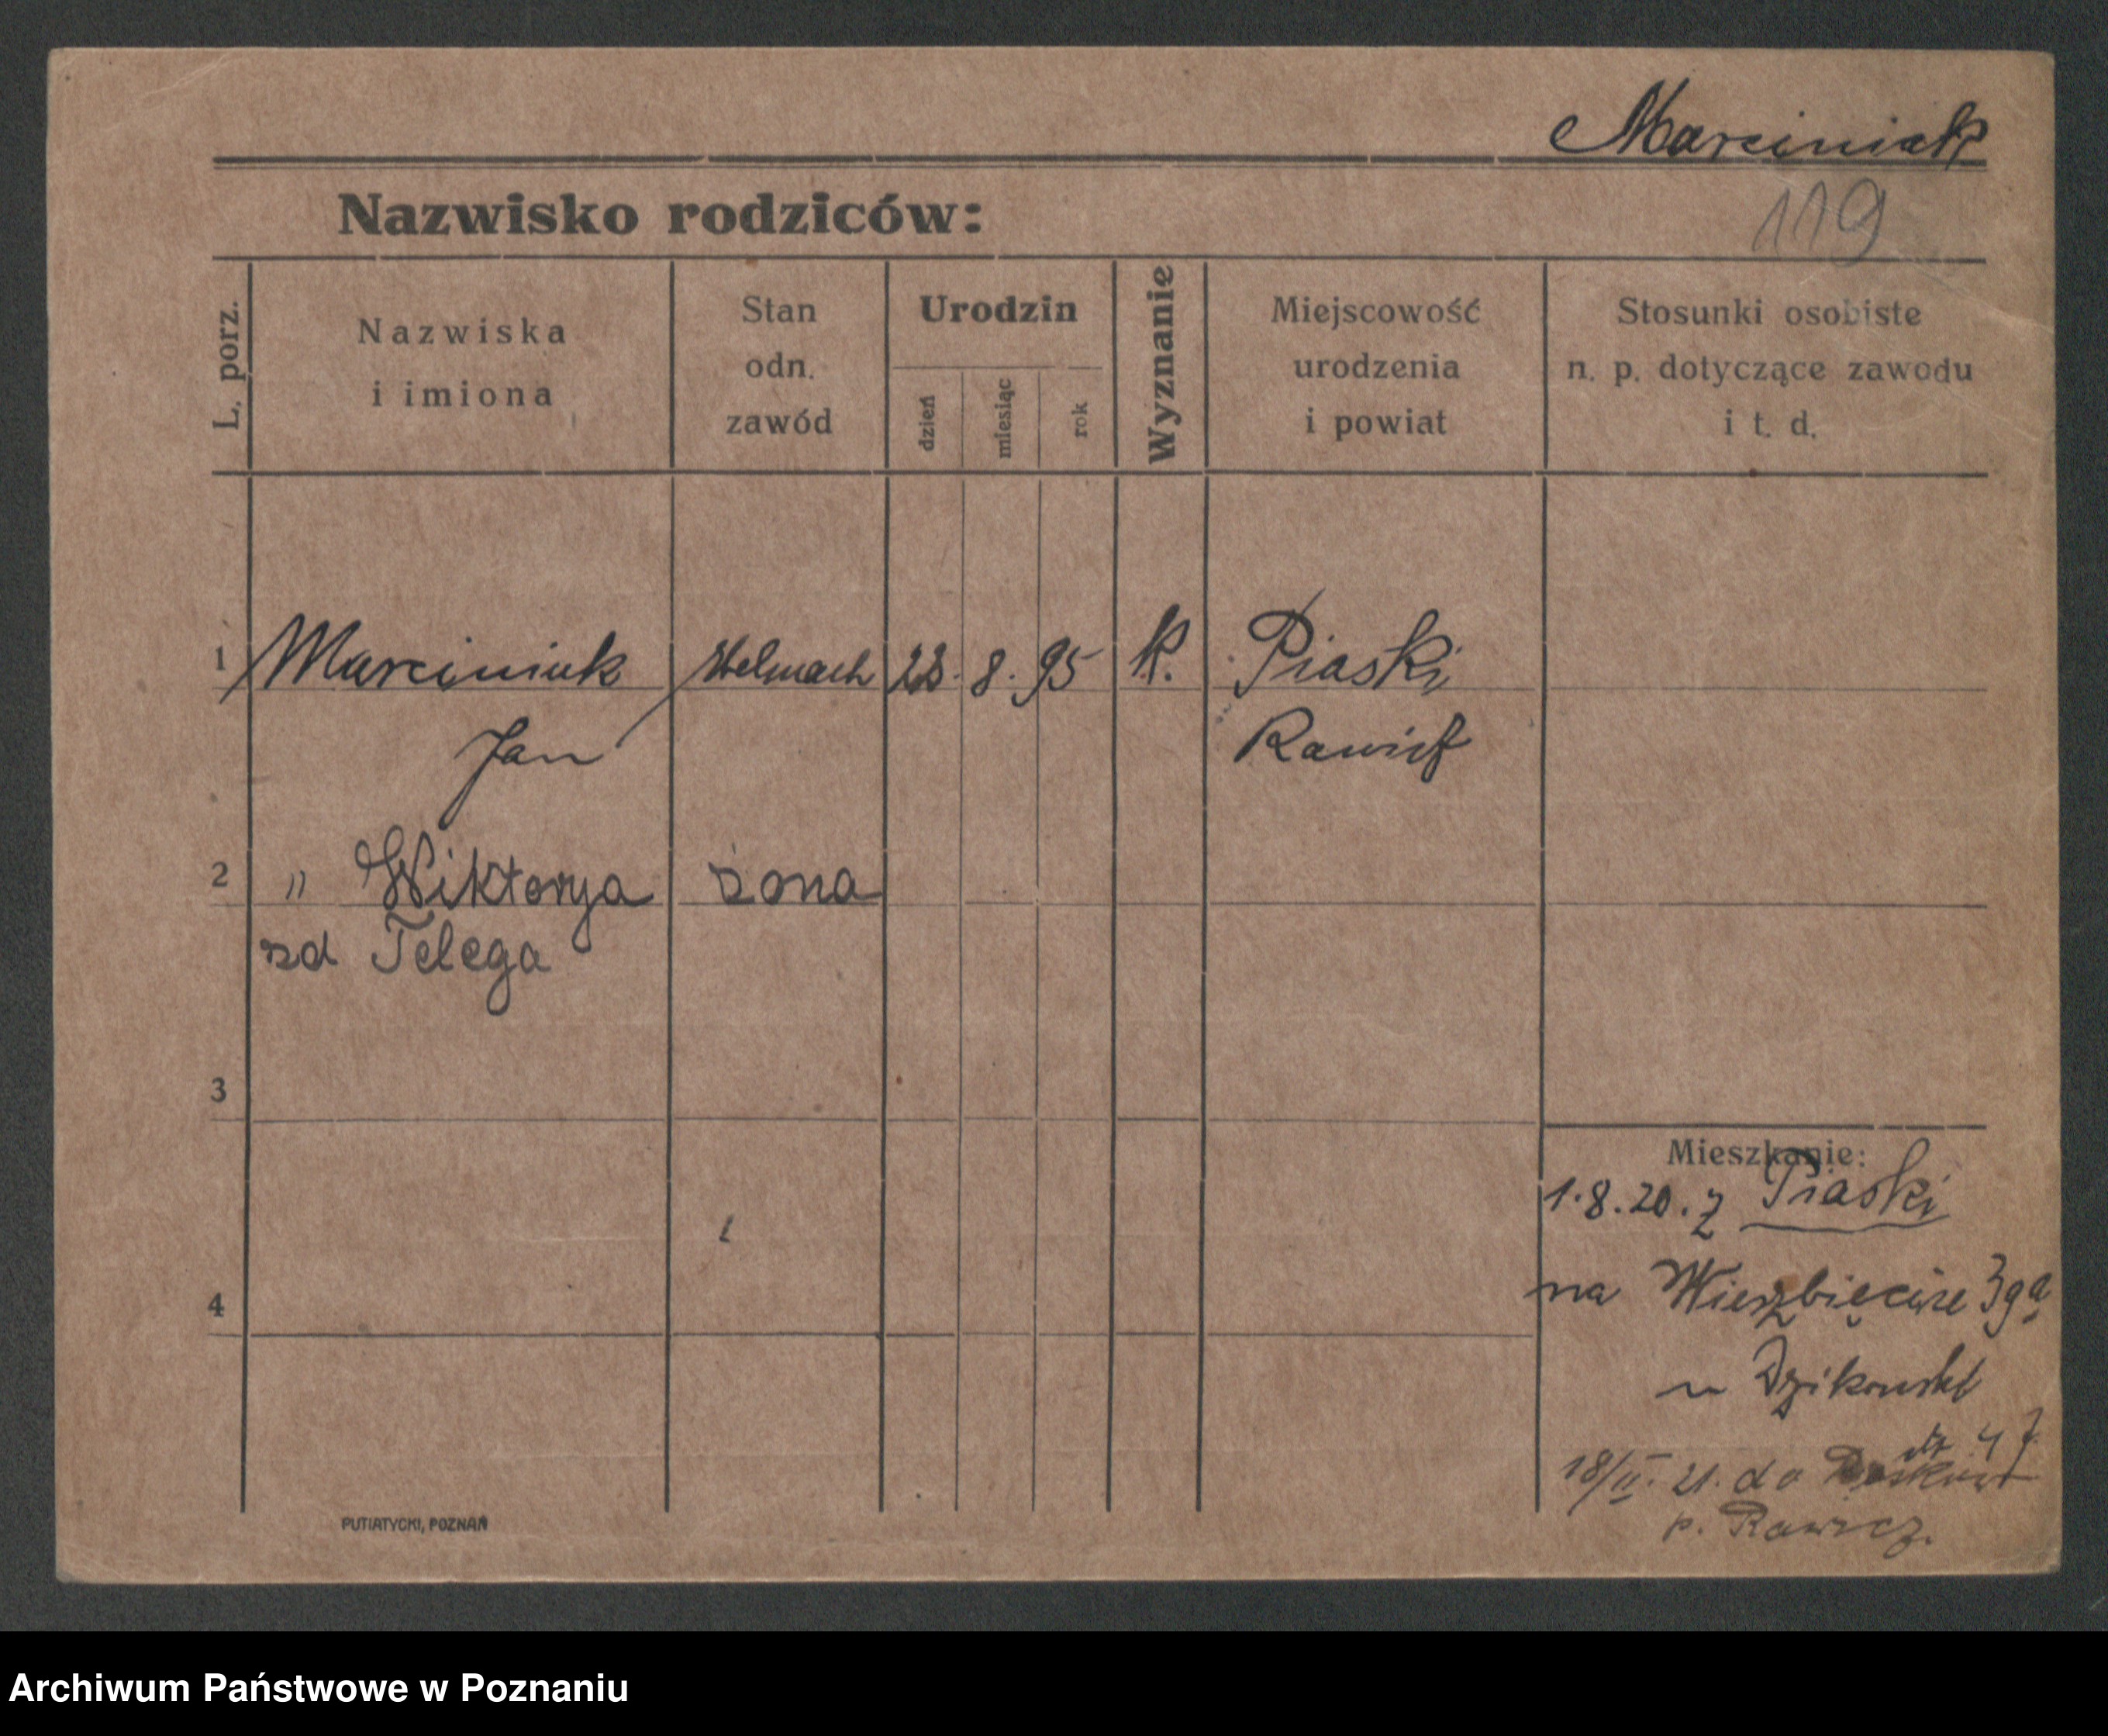 Marciniak
119
Nazwisko rodziców:
L. porz.
Nazwiska
i imiona
Stan
odn.
zawód
Urodzin
dzień
miesiąc
rok
Wyznanie
Miejscowość
urodzenia
i powiat
Stosunki osobiste
n. p. dotyczące zawodu
i t. d.
1 Marciniak 8. 95 k. Piaski
Jan
2 " Wiktorya żona
zd Telega
3
4
Mieszkanie:
1.8.20. z Piaski
na
u
18/II. 21. do
p. Rawicz.
PUTIATYCKI, POZNAŃ
Archiwum Państwowe w Poznaniu